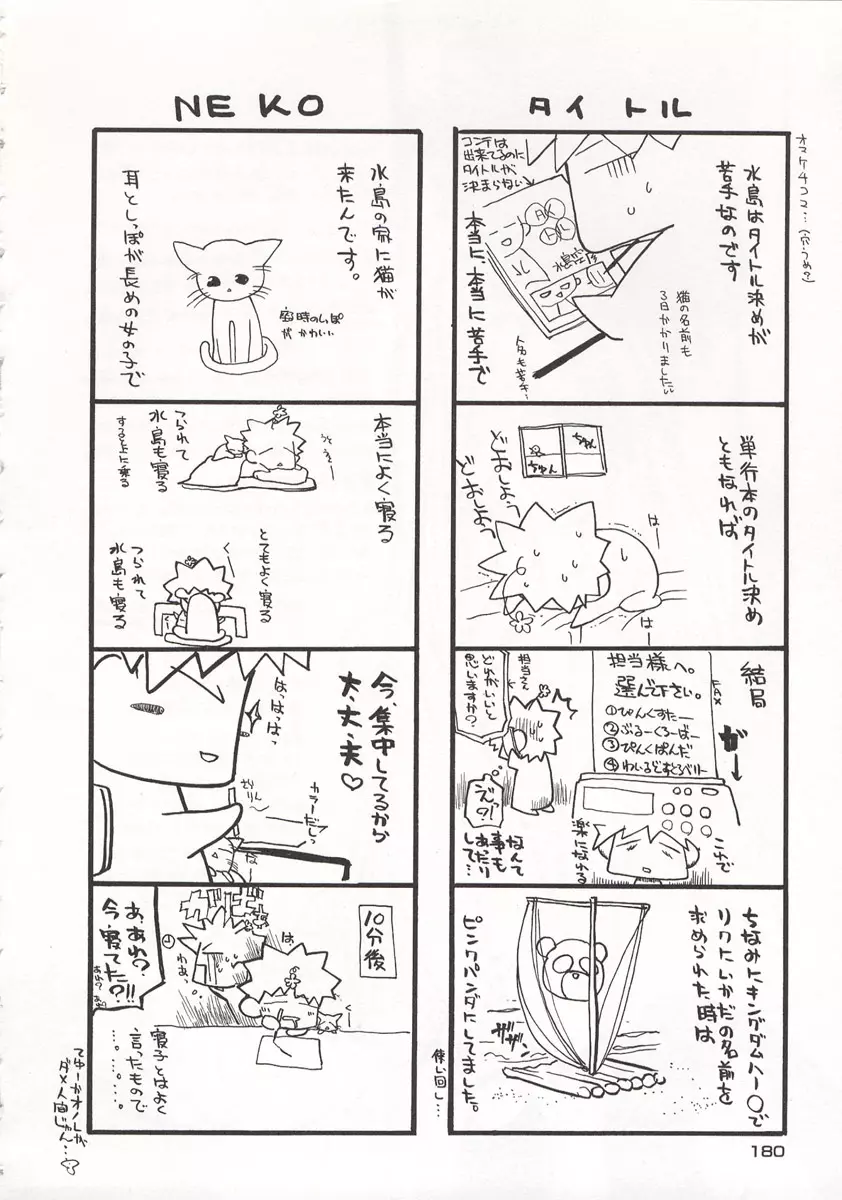 オマケ4コマ…(穴うめ?)
タイトル
水島はタイトル決めが
苦手なのです
コンテは
出来てるのに
タイトルが
決まらない
水島空屋
猫の名前も
3日かかりました
本当に、本当に苦手で
単行本のタイトル決め
ともなれば
ちゅん
ちゅん
どおしよう
どおしよう
は
は
結局
担当様へ。
選んで下さい。
①ぴんくすたー
②ぶるーくろーばー
③ぴんくぱんだ
④わいるどすとろべりー
FAX
ガー
担当さん
どれがいいと
思いますか?
なんて
事も
あったり
して…
これで
楽になれる
ちなみにキングダムハー〇で
リクにいかだの名前を
求められた時は
ザザ
ピンクパンダにしてました。
使い回し…
NEKO
水島の家に猫が
来たんです。
寝る時のしっぽ
がかわいい
耳としっぽが長めの女の子で
本当によく寝る
つられて
水島も寝る
すると上に乗る
とてもよく寝る
くー
つられて
水島も寝る
今、集中してるから
大、丈、夫♡
はっはっはっ
カラーだしっ
10分後
は
わあ、
くー
あ、あれ?
今、寝てた?!!
あれ?
寝子とはよく
言ったもので
………
てゆーかオノレが
ダメ人間じゃん…
180